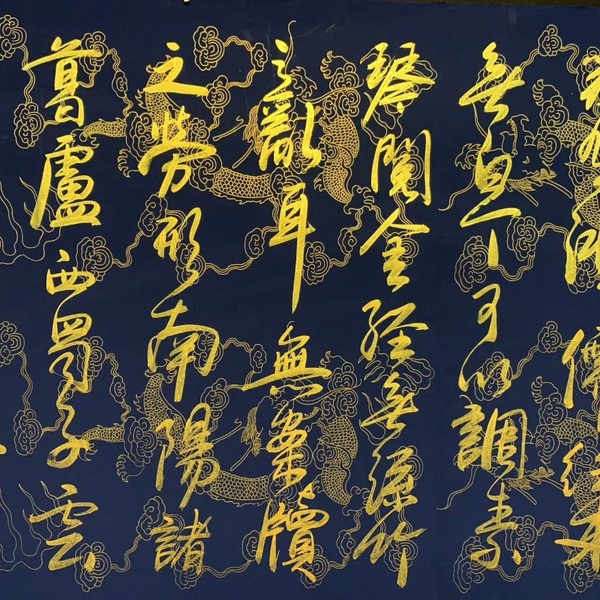 儒往來
無白丁可以調素
琴閱金經無絲竹
之亂耳無案牘
之勞形南陽諸
葛廬西蜀子雲